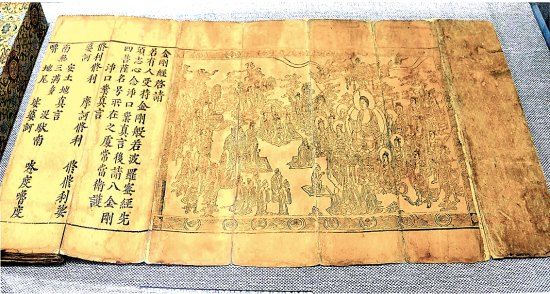 金剛經啓請
若有人受持金剛般若波羅蜜經先
須志心念淨口業真言後請八金剛
四菩薩名号所在之處常當擁護
淨口業真言
脩利脩利 摩訶脩利 脩脩利娑
婆訶
安土地真言
南無三滿多 没馱南 唵度嚕度
嚕地尾 娑婆訶